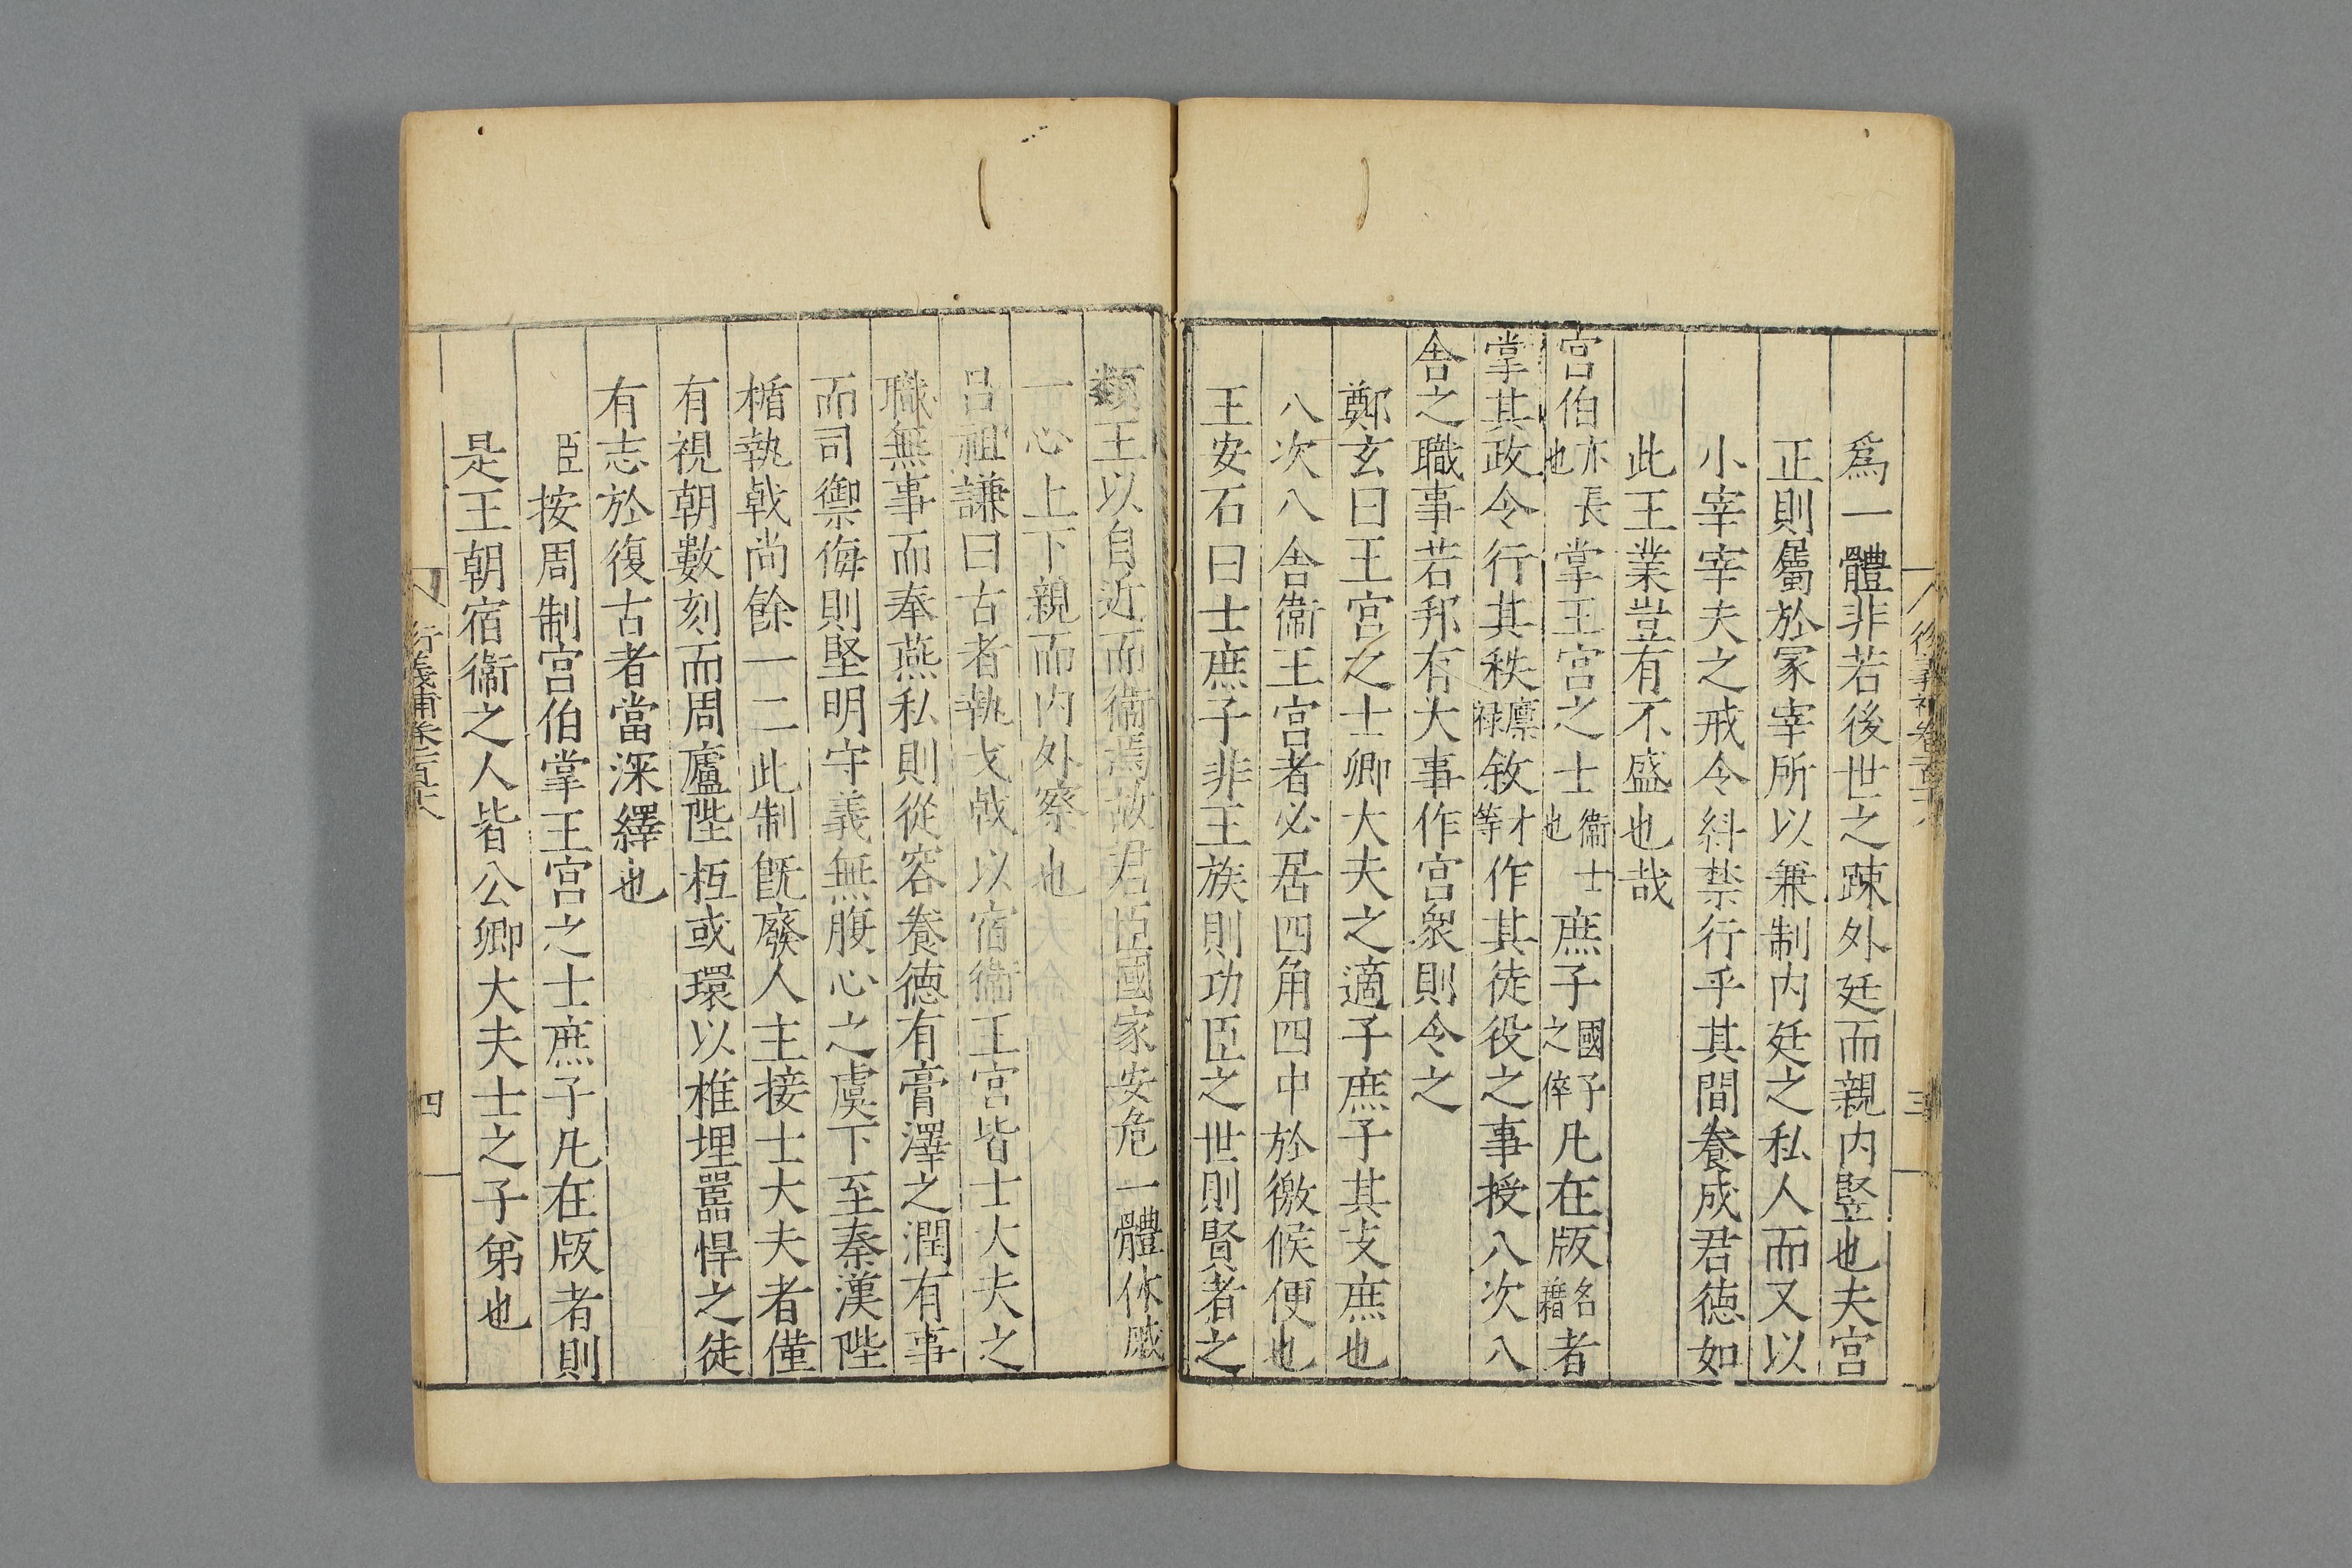 爲一體非若後世之疎外廷而親内竪也夫宫
正則屬於冢宰所以兼制内廷之私人而又以
小宰宰夫之戒令糾禁行乎其間養成君徳如
此王業豈有不盛也哉
宫伯亦長也掌王宫之士衞士也庶子國子之倅凡在版名籍者
掌其政令行其秩廪禄敘才等作其徒役之事授八次八
舎之職事若邦有大事作宫衆則令之
鄭玄曰王宫之士卿大夫之適子庶子其支庶也
八次八舎衞王宫者必居四角四中於徼候便也
王安石曰士庶子非王族則功臣之世則賢者之
類王以自近而衞焉故君臣國家安危一體休戚
一心上下親而内外察也
吕祖謙曰古者執戈戟以宿衞王宫皆士大夫之
職無事而奉燕私則從容養德有膏澤之潤有事
而司禦侮則堅明守義無腹心之虞下至秦漢陛
楯執戟尚餘一二此制既廢人主接士大夫者僅
有視朝數刻而周廬陛枑或環以椎埋嚚悍之徒
有志於復古者當深繹也
臣按周制宫伯掌王宫之士庶子凡在版者則
是王朝宿衞之人皆公卿大夫士之子弟也
四